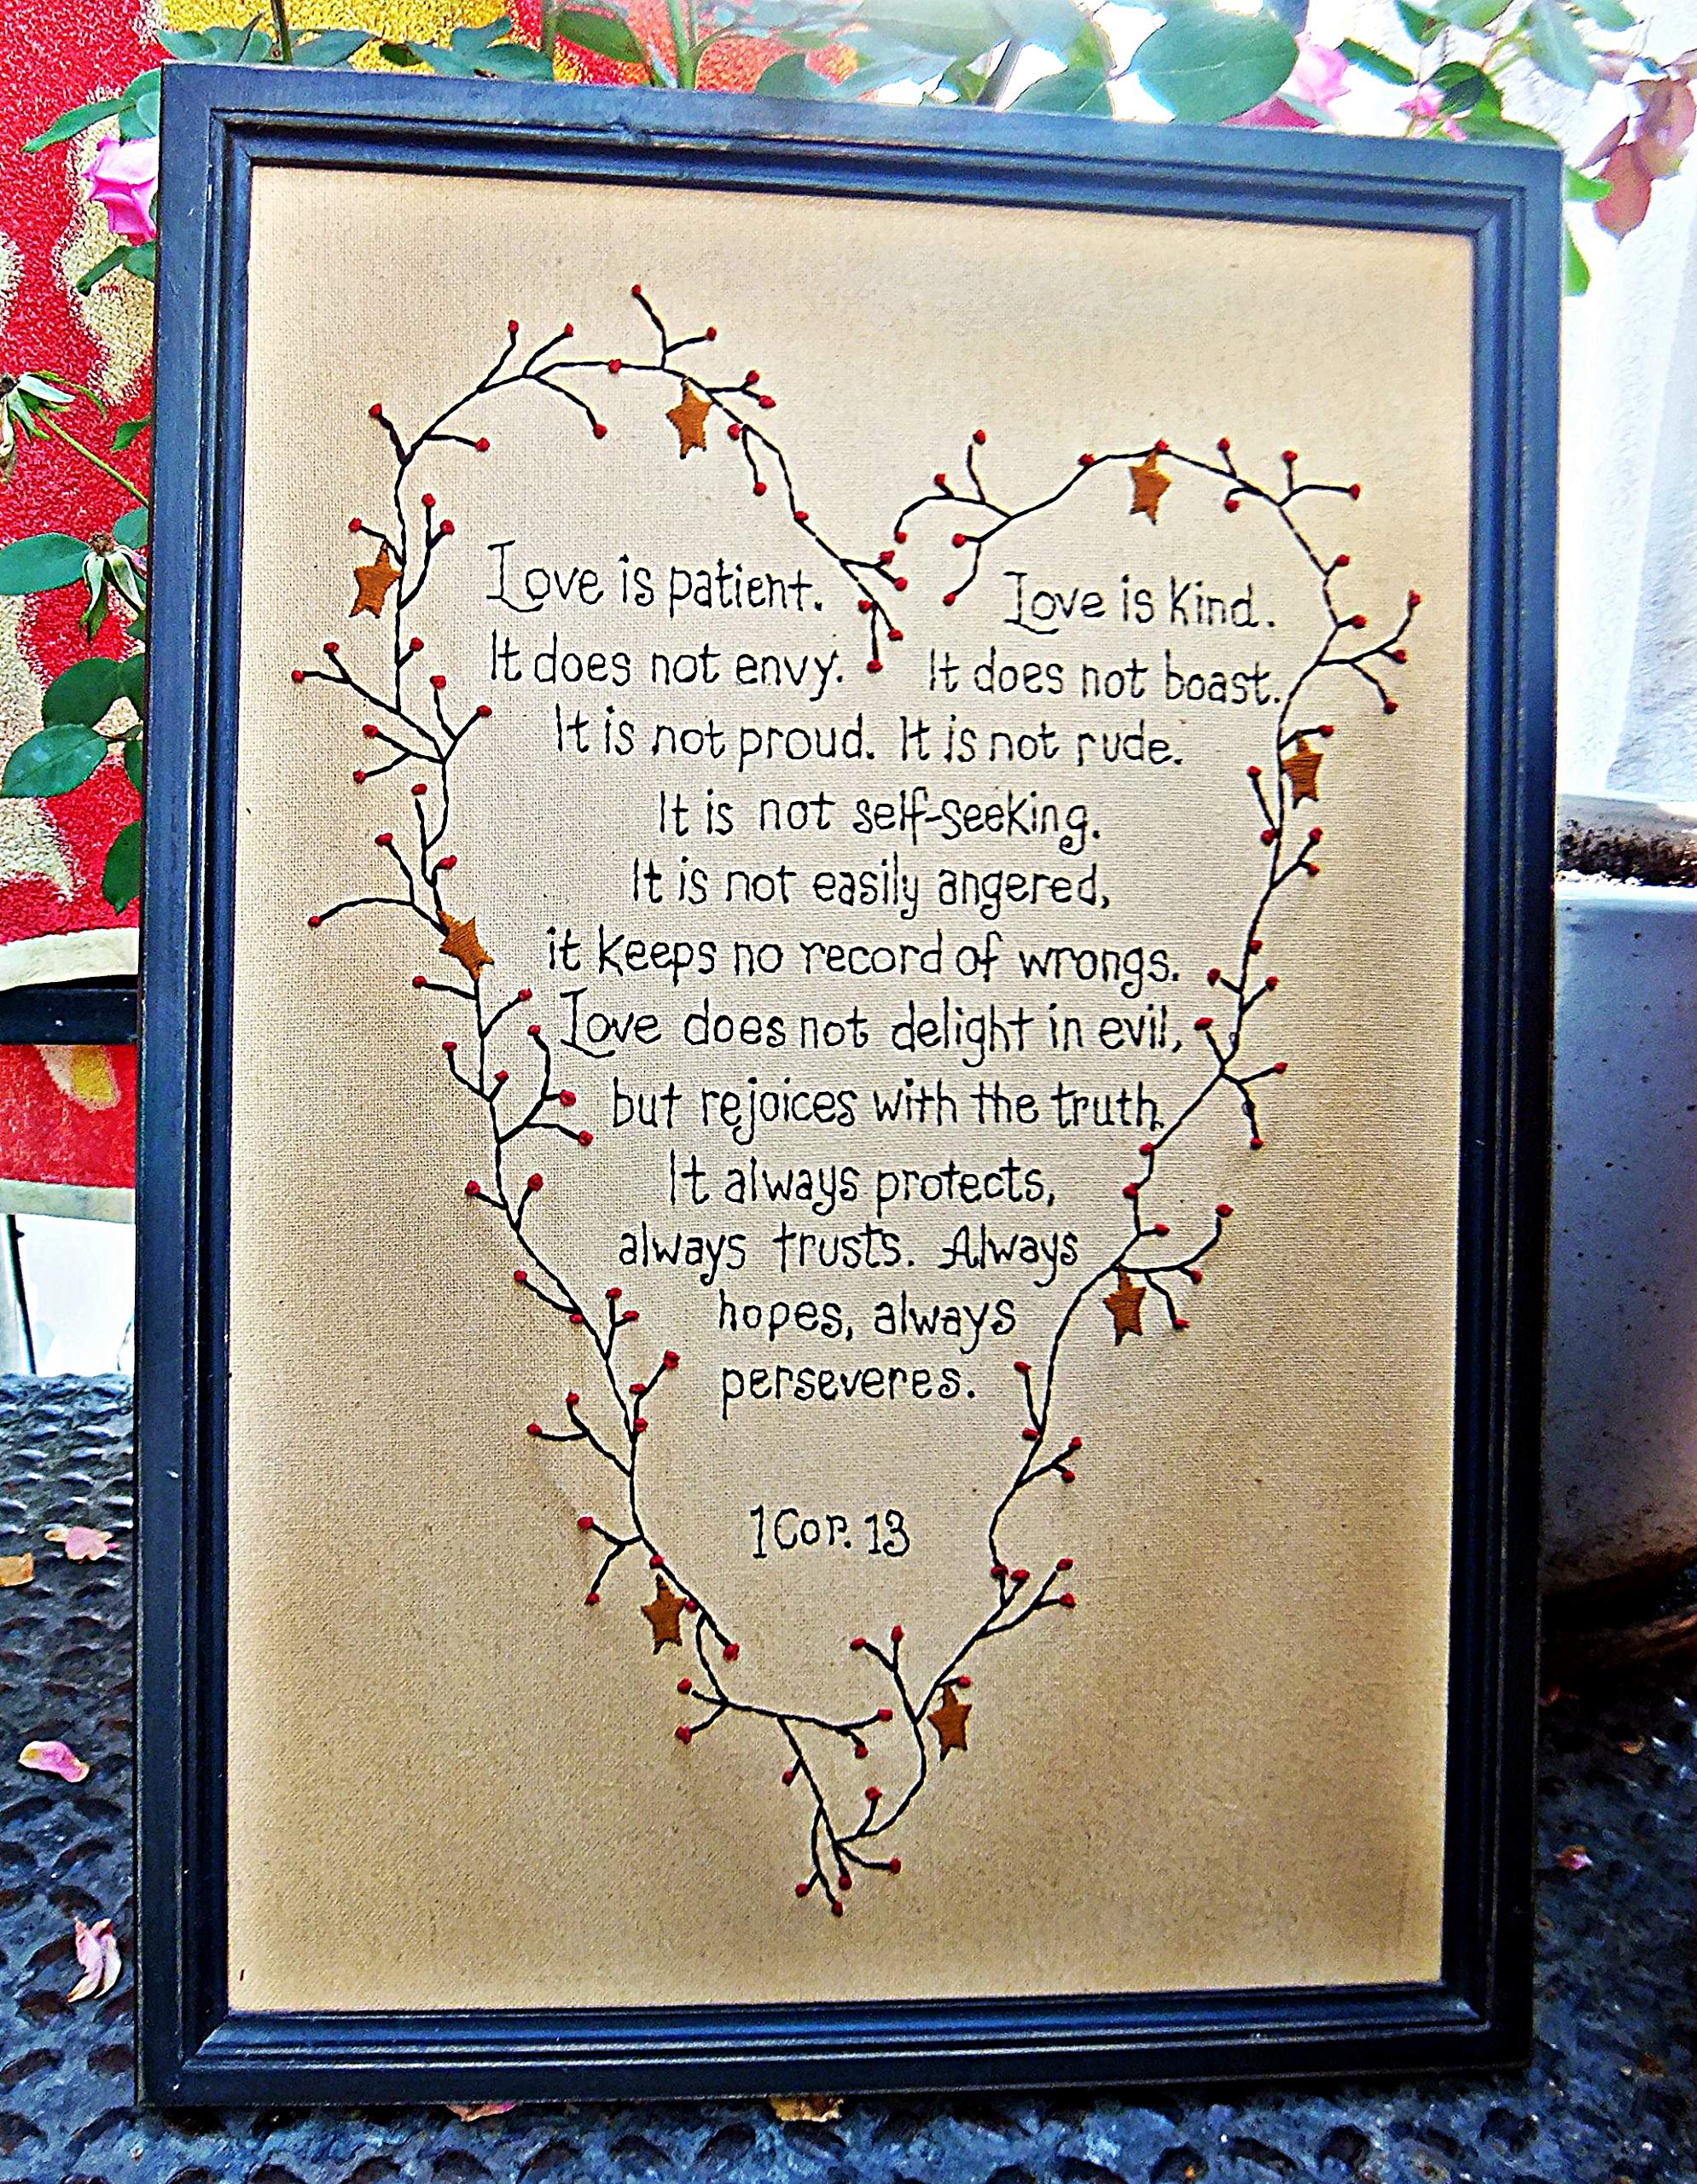 Love is patient. Love is kind.
It does not envy. It does not boast.
It is not proud. It is not rude.
It is not self-seeking.
It is not easily angered,
it keeps no record of wrongs.
Love does not delight in evil,
but rejoices with the truth.
It always protects,
always trusts. Always
hopes, always
perseveres.
1 Cor. 13